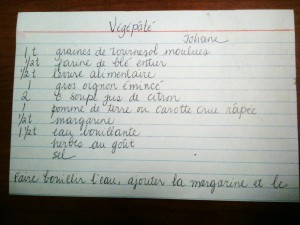 Végépâté
Johanne
1 t graines de tournesol moulues
1/2 t farine de blé entier
1/2 t levure alimentaire
1 gros oignon émincé
2 c. soupe jus de citron
1 pomme de terre ou carotte crue râpée
1/2 t margarine
1 1/2 t eau bouillante
herbes au goût
sel
Faire bouillir l'eau, ajouter la margarine et le